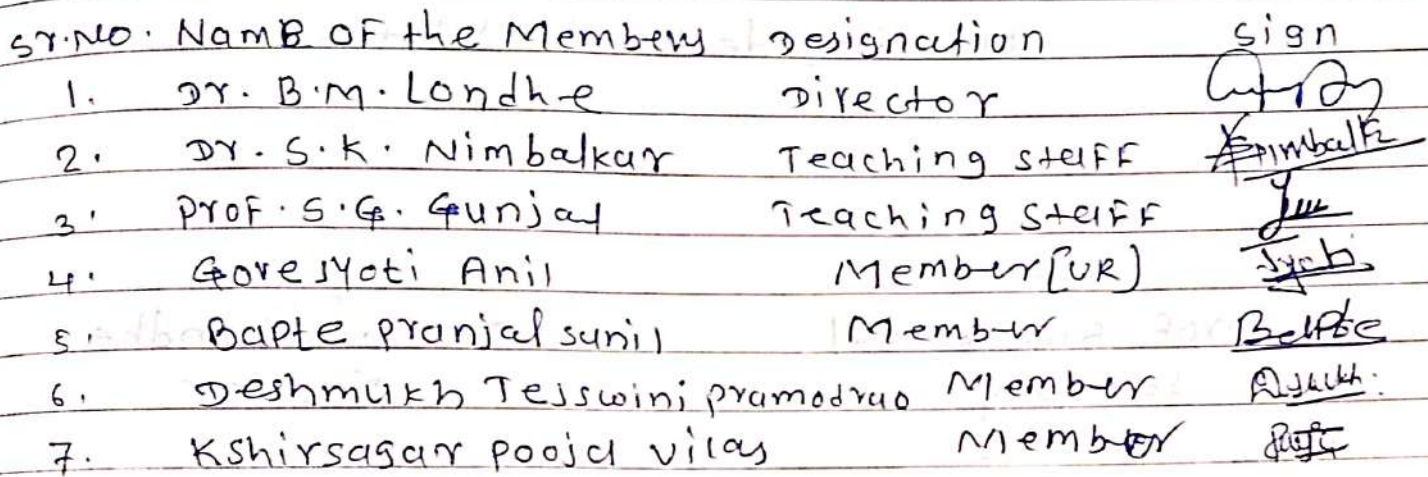 Sr.No. Name OF the Members Designation sign
1. Dr. B.M. Londhe Director
2. Dr. S.K. Nimbalkar Teaching staFF Nimbalk
3. Prof. S.G. Gunjal Teaching StaFF
4. Gore Jyoti Anil Member [UR] Jyoti
5. Bapte pranjal sunil Member Bapte
6. Deshmukh Tejswini pramodrao Member
7. Kshirsagar pooja vilas Member